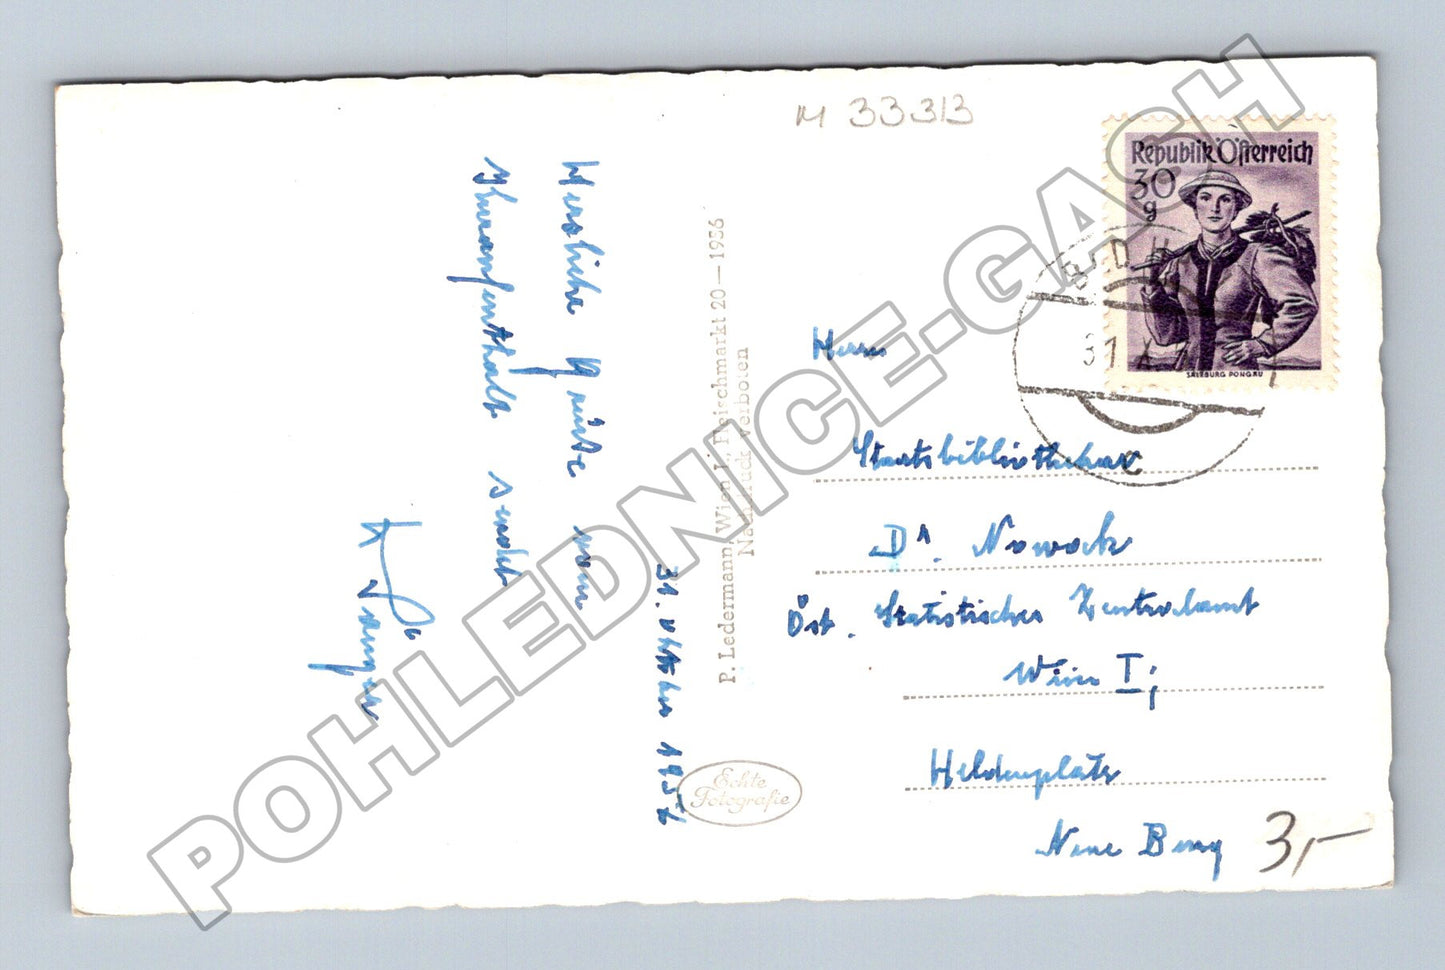 M 33313
Republik Österreich
30
g
SALZBURG PONGAU
31. X.
c
Herzliche Grüße vom
Kuraufenthalt sendet
31. Oktober 1957
P. Ledermann, Wien I., Fleischmarkt 20—1956
Nachdruck verboten
Echte
Fotografie
Herrn
Staatsbibliothekar
Dr. Nowack
Öst. Statistisches Zentralamt
Wien I;
Heldenplatz
Neue Burg
3,—
POHLEDNICE-GASH